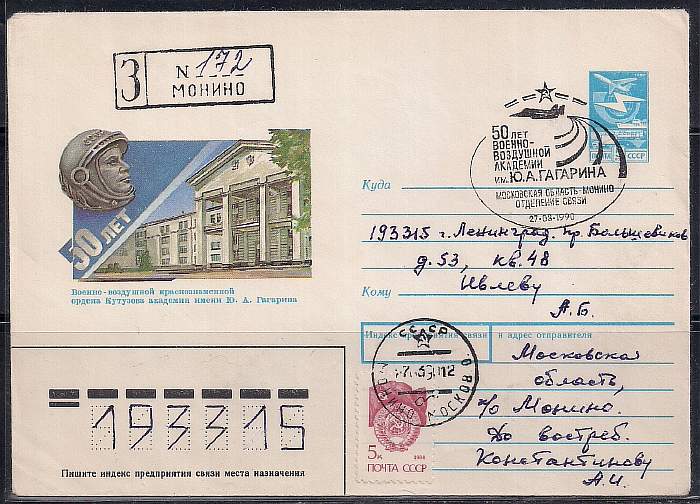 З
N 172
МОНИНО
50 ЛЕТ
ВОЕННО-
ВОЗДУШНОЙ
АКАДЕМИИ
им. Ю.А.ГАГАРИНА
МОСКОВСКАЯ ОБЛАСТЬ-МОНИНО
ОТДЕЛЕНИЕ СВЯЗИ
27-03-1990
ПОЧТА СССР
50 ЛЕТ
Военно-воздушной краснознаменной
ордена Кутузова академии имени Ю. А. Гагарина
Куда
193315 г. Ленинград. пр. Большевиков
д. 53, кв. 48
Кому
Ивлеву
А.Б.
Индекс предприятия связи и адрес отправителя
Московская
область,
п/о Монино.
До востреб.
Константинову
А.И.
СССР
МОНИНО МОСКОВ О.
5к 1988
ПОЧТА СССР
193315
Пишите индекс предприятия связи места назначения